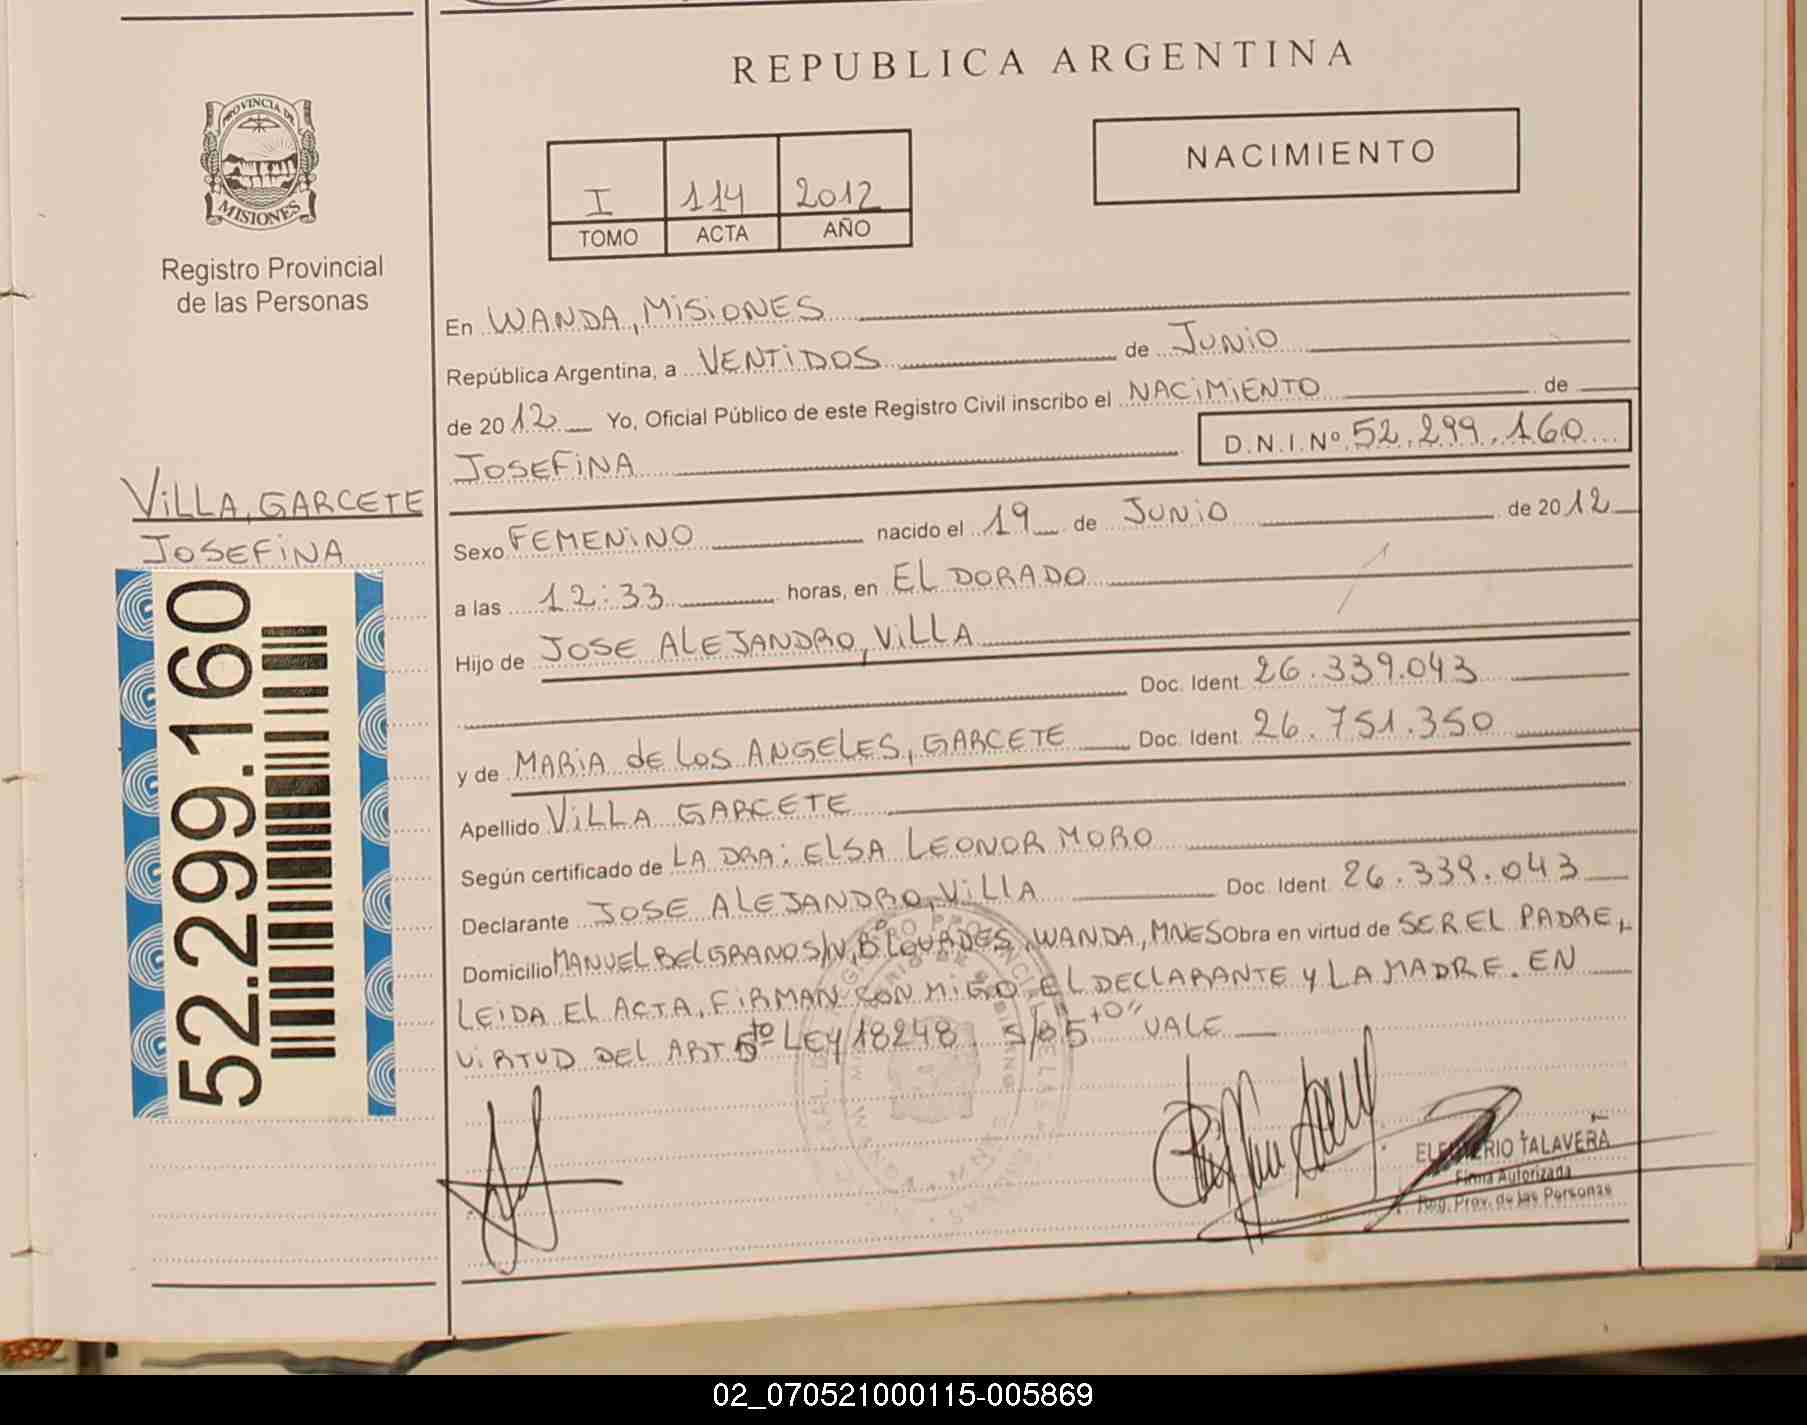 REPUBLICA ARGENTINA
PROVINCIA DE
MISIONES
Registro Provincial
de las Personas
NACIMIENTO
I 114 2012
TOMO ACTA AÑO
En WANDA, MISIONES
República Argentina, a VENTIDOS de JUNIO
de 2012 Yo, Oficial Público de este Registro Civil inscribo el NACIMIENTO de
JOSEFINA D.N.I.Nº 52.299.160
VILLA, GARCETE
JOSEFINA
52.299.160
Sexo FEMENINO nacido el 19 de JUNIO de 2012
a las 12:33 horas, en EL DORADO
Hijo de JOSE ALEJANDRO, VILLA
Doc. Ident. 26.339.043
y de MARIA de LOS ANGELES, GARCETE Doc. Ident. 26.751.350
Apellido VILLA GARCETE
Según certificado de LA DRA: ELSA LEONOR MORO
Declarante JOSE ALEJANDRO, VILLA Doc. Ident. 26.339.043
Domicilio MANUEL BELGRANO S/N, Bº LOURDES, WANDA, MNES Obra en virtud de SER EL PADRE,
LEIDA EL ACTA, FIRMAN CON MIGO EL DECLARANTE Y LA MADRE. EN
VIRTUD DEL ART 5to LEY 18248. S/B 5to" VALE
ELEUTERIO TALAVERA
Firma Autorizada
Reg. Prov. de las Personas
02_070521000115-005869